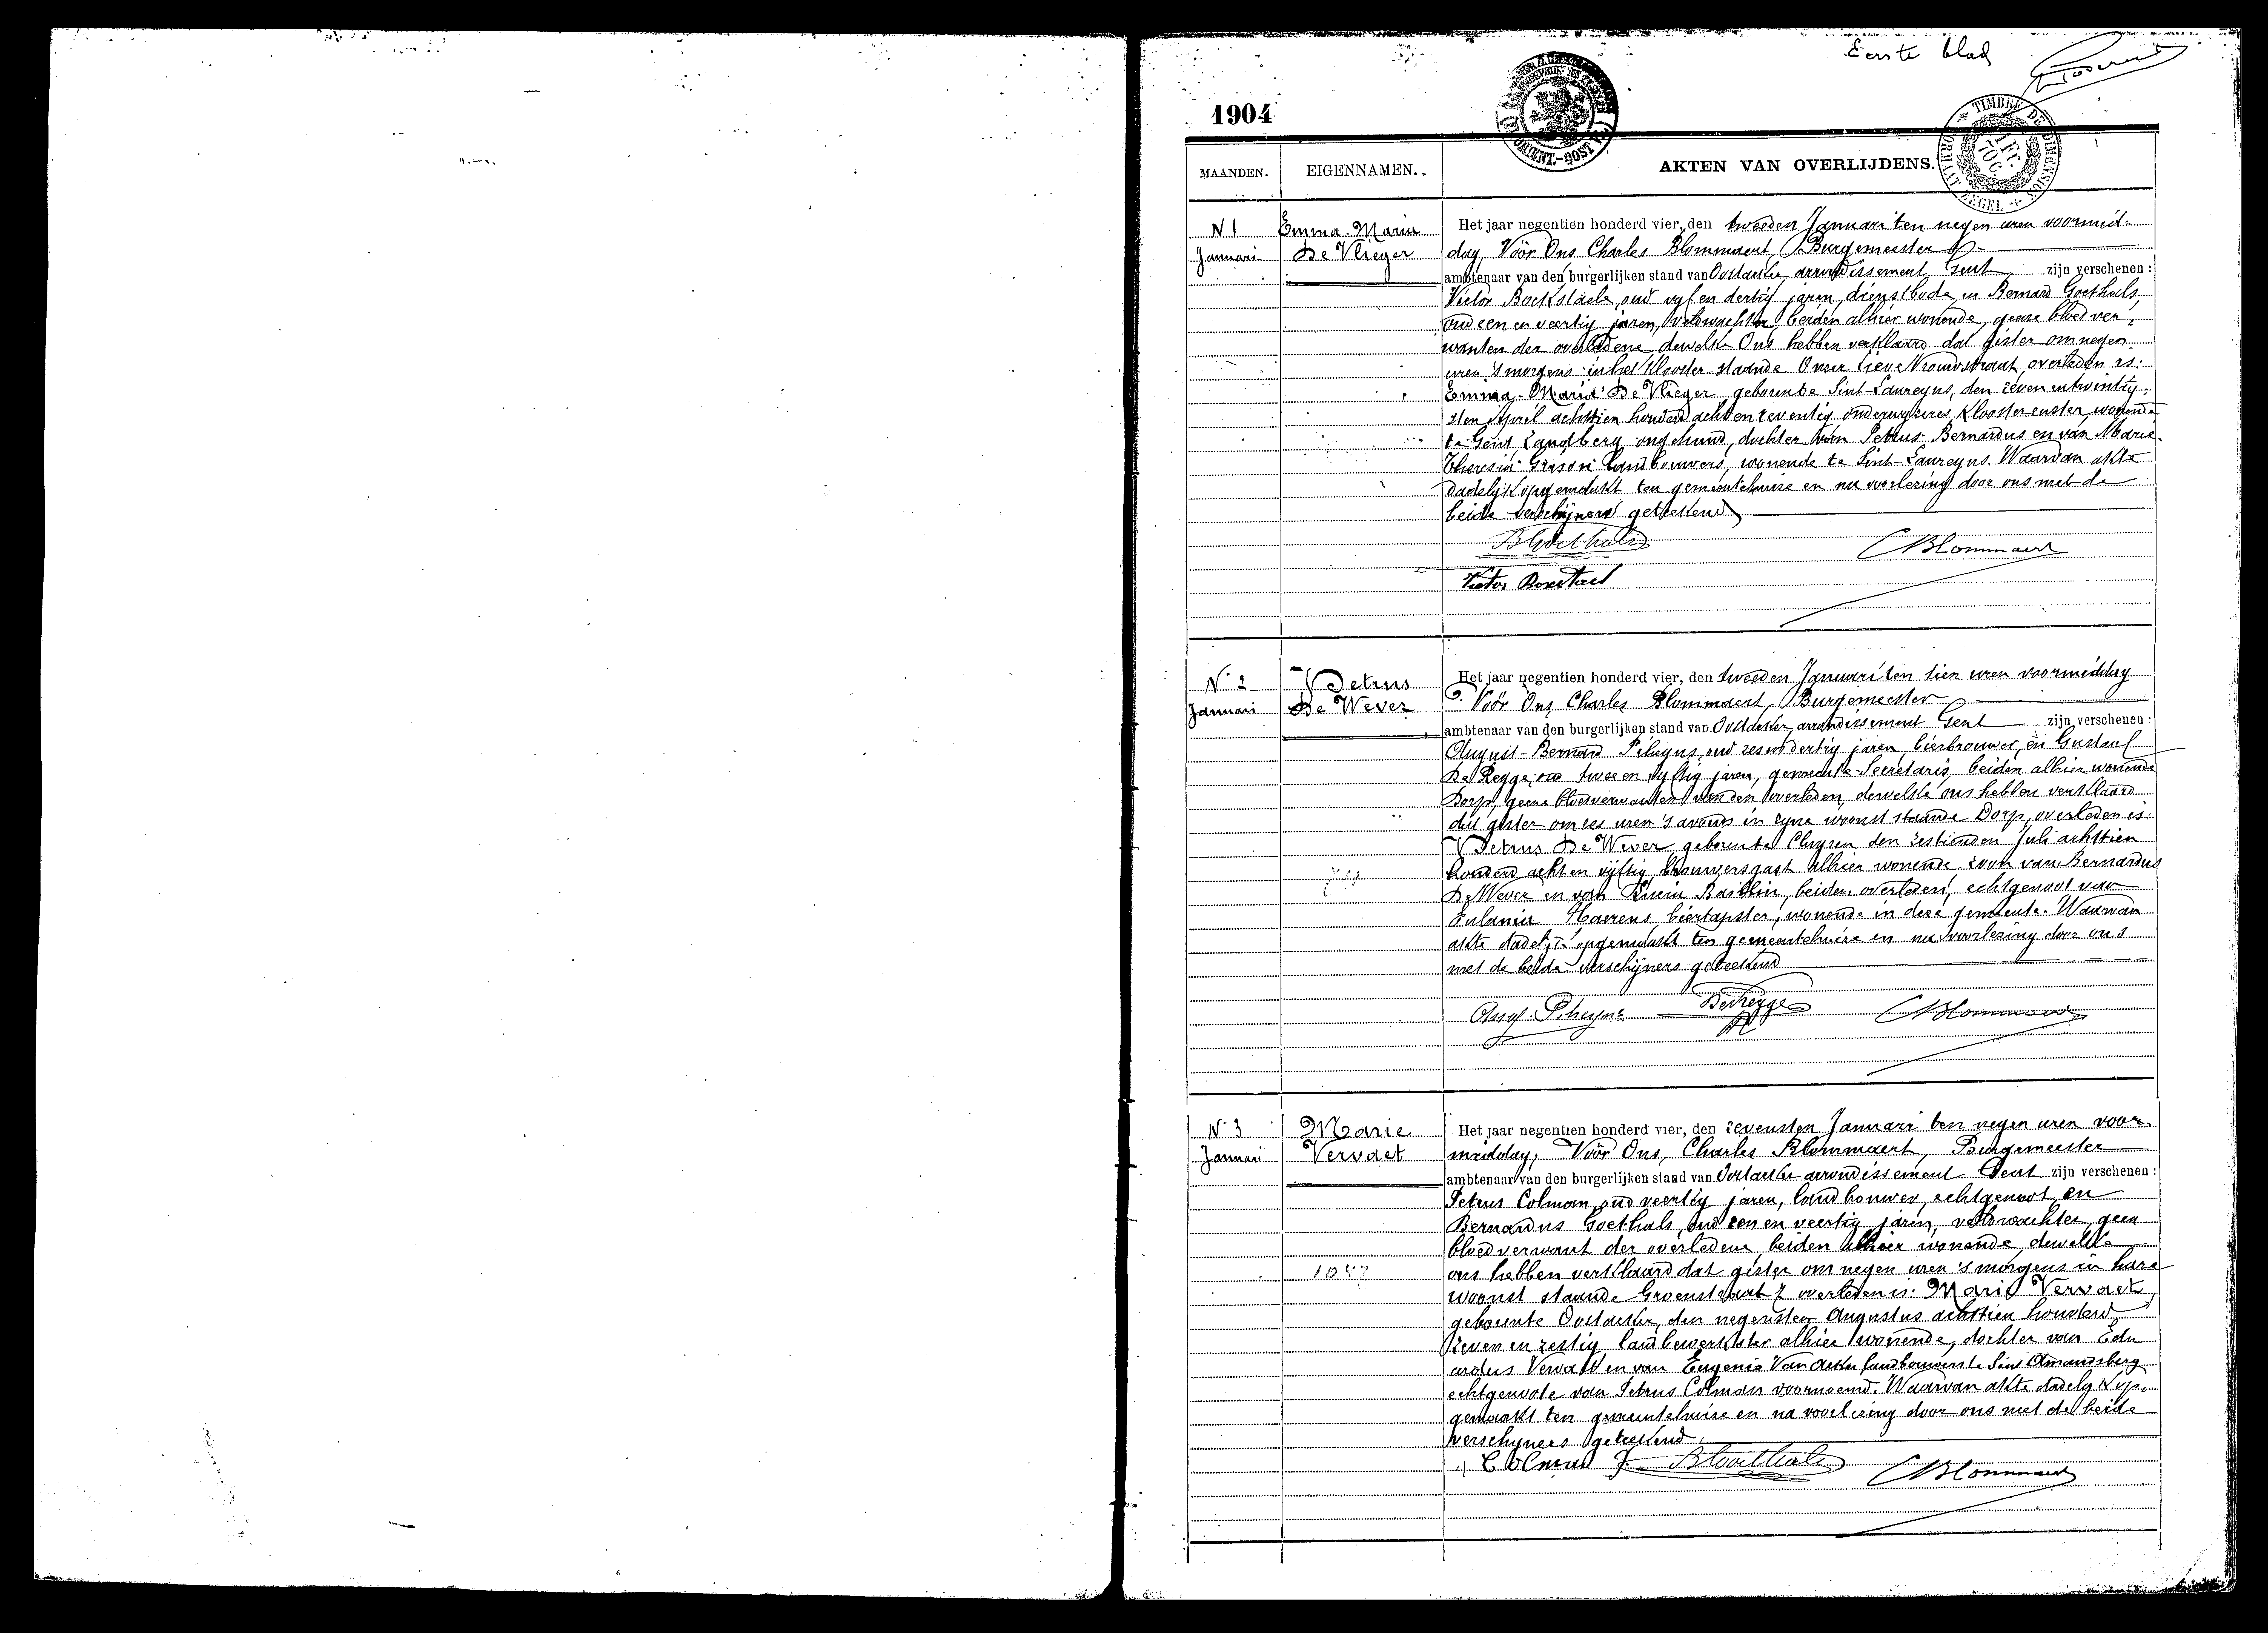 Eerste blad
1904
TIMBRE DE DIMENSION
FORMAAT ZEGEL
MAANDEN.
EIGENNAMEN.
AKTEN VAN OVERLIJDENS.
N 1
Januari
Emma-Maria
De Vlieger
Het jaar negentien honderd vier, den tweeden Januari ten negen uren voormid-
dag, Vóór Ons Charles Blommaert, Burgemeester
ambtenaar van den burgerlijken stand van Oostacker, arrondissement Gent zijn verschenen :
Victor Bockstaele, oud vyf en dertig jaren, dienstbode, en Bernard Goethals,
oud een en veertig jaren, veldwachter, beiden alhier wonende, geene bloedver-
wanten der overledene, dewelke Ons hebben verklaard dat gister om negen
uren 's morgens in het klooster staande Onzer Lieve Vrouwstraat, overleden is:
Emma-Maria De Vlieger geboren te Sint-Laureyns, den zeven en twintig-
sten April achttien honderd acht en zeventig, onderwyzeres, kloosterzuster, wonende
te Gent, Zandberg, ongehuwd, dochter van Petrus-Bernardus en van Marie-
Theresia landbouwers, wonende te Sint-Laureyns. Waarvan akte
dadelijk opgemaakt ten gemeentehuize en na voorlezing door ons met de
beide verschijners geteekend
BGoethals
CBlommaert
Victor Bockstael
N. 2
Januari
Petrus
De Wever
Het jaar negentien honderd vier, den tweeden Januari ten tien uren voormiddag
Vóór Ons Charles Blommaert, Burgemeester
ambtenaar van den burgerlijken stand van Oostacker, arrondissement Gent zijn verschenen :
August-Bernard oud zes en dertig jaren, bierbrouwer, en Gustaaf
De Regge, oud twee en vyftig jaren, gemeente-Secretaris, beiden alhier wonende
Dorp, geene bloedverwanten van den overleden, dewelke ons hebben verklaard
dat gister om zes uren 's avonds in zyne woonst staande Dorp, overleden is:
Petrus De Wever, geboren te Cluysen den zestienden Juli achttien
honderd acht en vijftig, brouwersgast alhier wonende, zoon van Bernardus
De Wever en van beiden overleden, echtgenoot van
Eulania Haerens, biertapster, wonende in deze gemeente. Waarvan
akte dadelijk opgemaakt ten gemeentehuize en na voorlezing door ons
met de beide verschijners geteekend
DeRegge
CBlommaert
N. 3
Januari
Marie
Vervaet
1047
Het jaar negentien honderd vier, den zevensten Januari ten negen uren voor-
middag, Vóór Ons, Charles Blommaert, Burgemeester
ambtenaar van den burgerlijken stand van Oostacker arrondissement Gent zijn verschenen :
Petrus Colman, oud veertig jaren, landbouwer, echtgenoot, en
Bernardus Goethals, oud een en veertig jaren, veldwachter, geen
bloedverwant der overledene, beiden alhier wonende, dewelke
ons hebben verklaard dat gister om negen uren 's morgens in hare
woonst staande Groenstraat 7 overleden is: Marie Vervaet,
geboren te Oostacker, den negensten Augustus achttien honderd
zeven en zestig, landbewerkster alhier wonende, dochter van Edu-
ardus Vervaet en van Eugenie Van Acker, landbouwers te Sint Amandsberg
echtgenote van Petrus Colman voornoemd. Waarvan akte dadelyk op-
gemaakt ten gemeentehuize en na voorlezing door ons met de beide
verschyners geteekend.
Colman P
BGoethals
CBlommaert